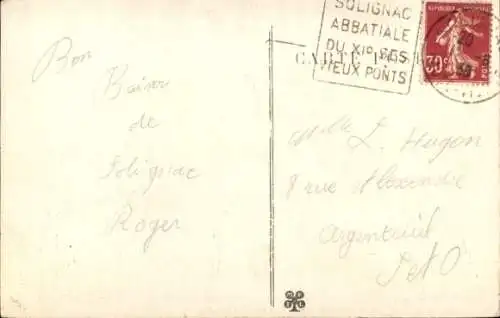 SOLIGNAC
ABBATIALE
DU XIe SES
VIEUX PONTS
30c
CARTE
Bon
Baiser
de
Solignac
Roger
Mlle L. Hugon
8 rue Alexandre
Argenteuil
S et O